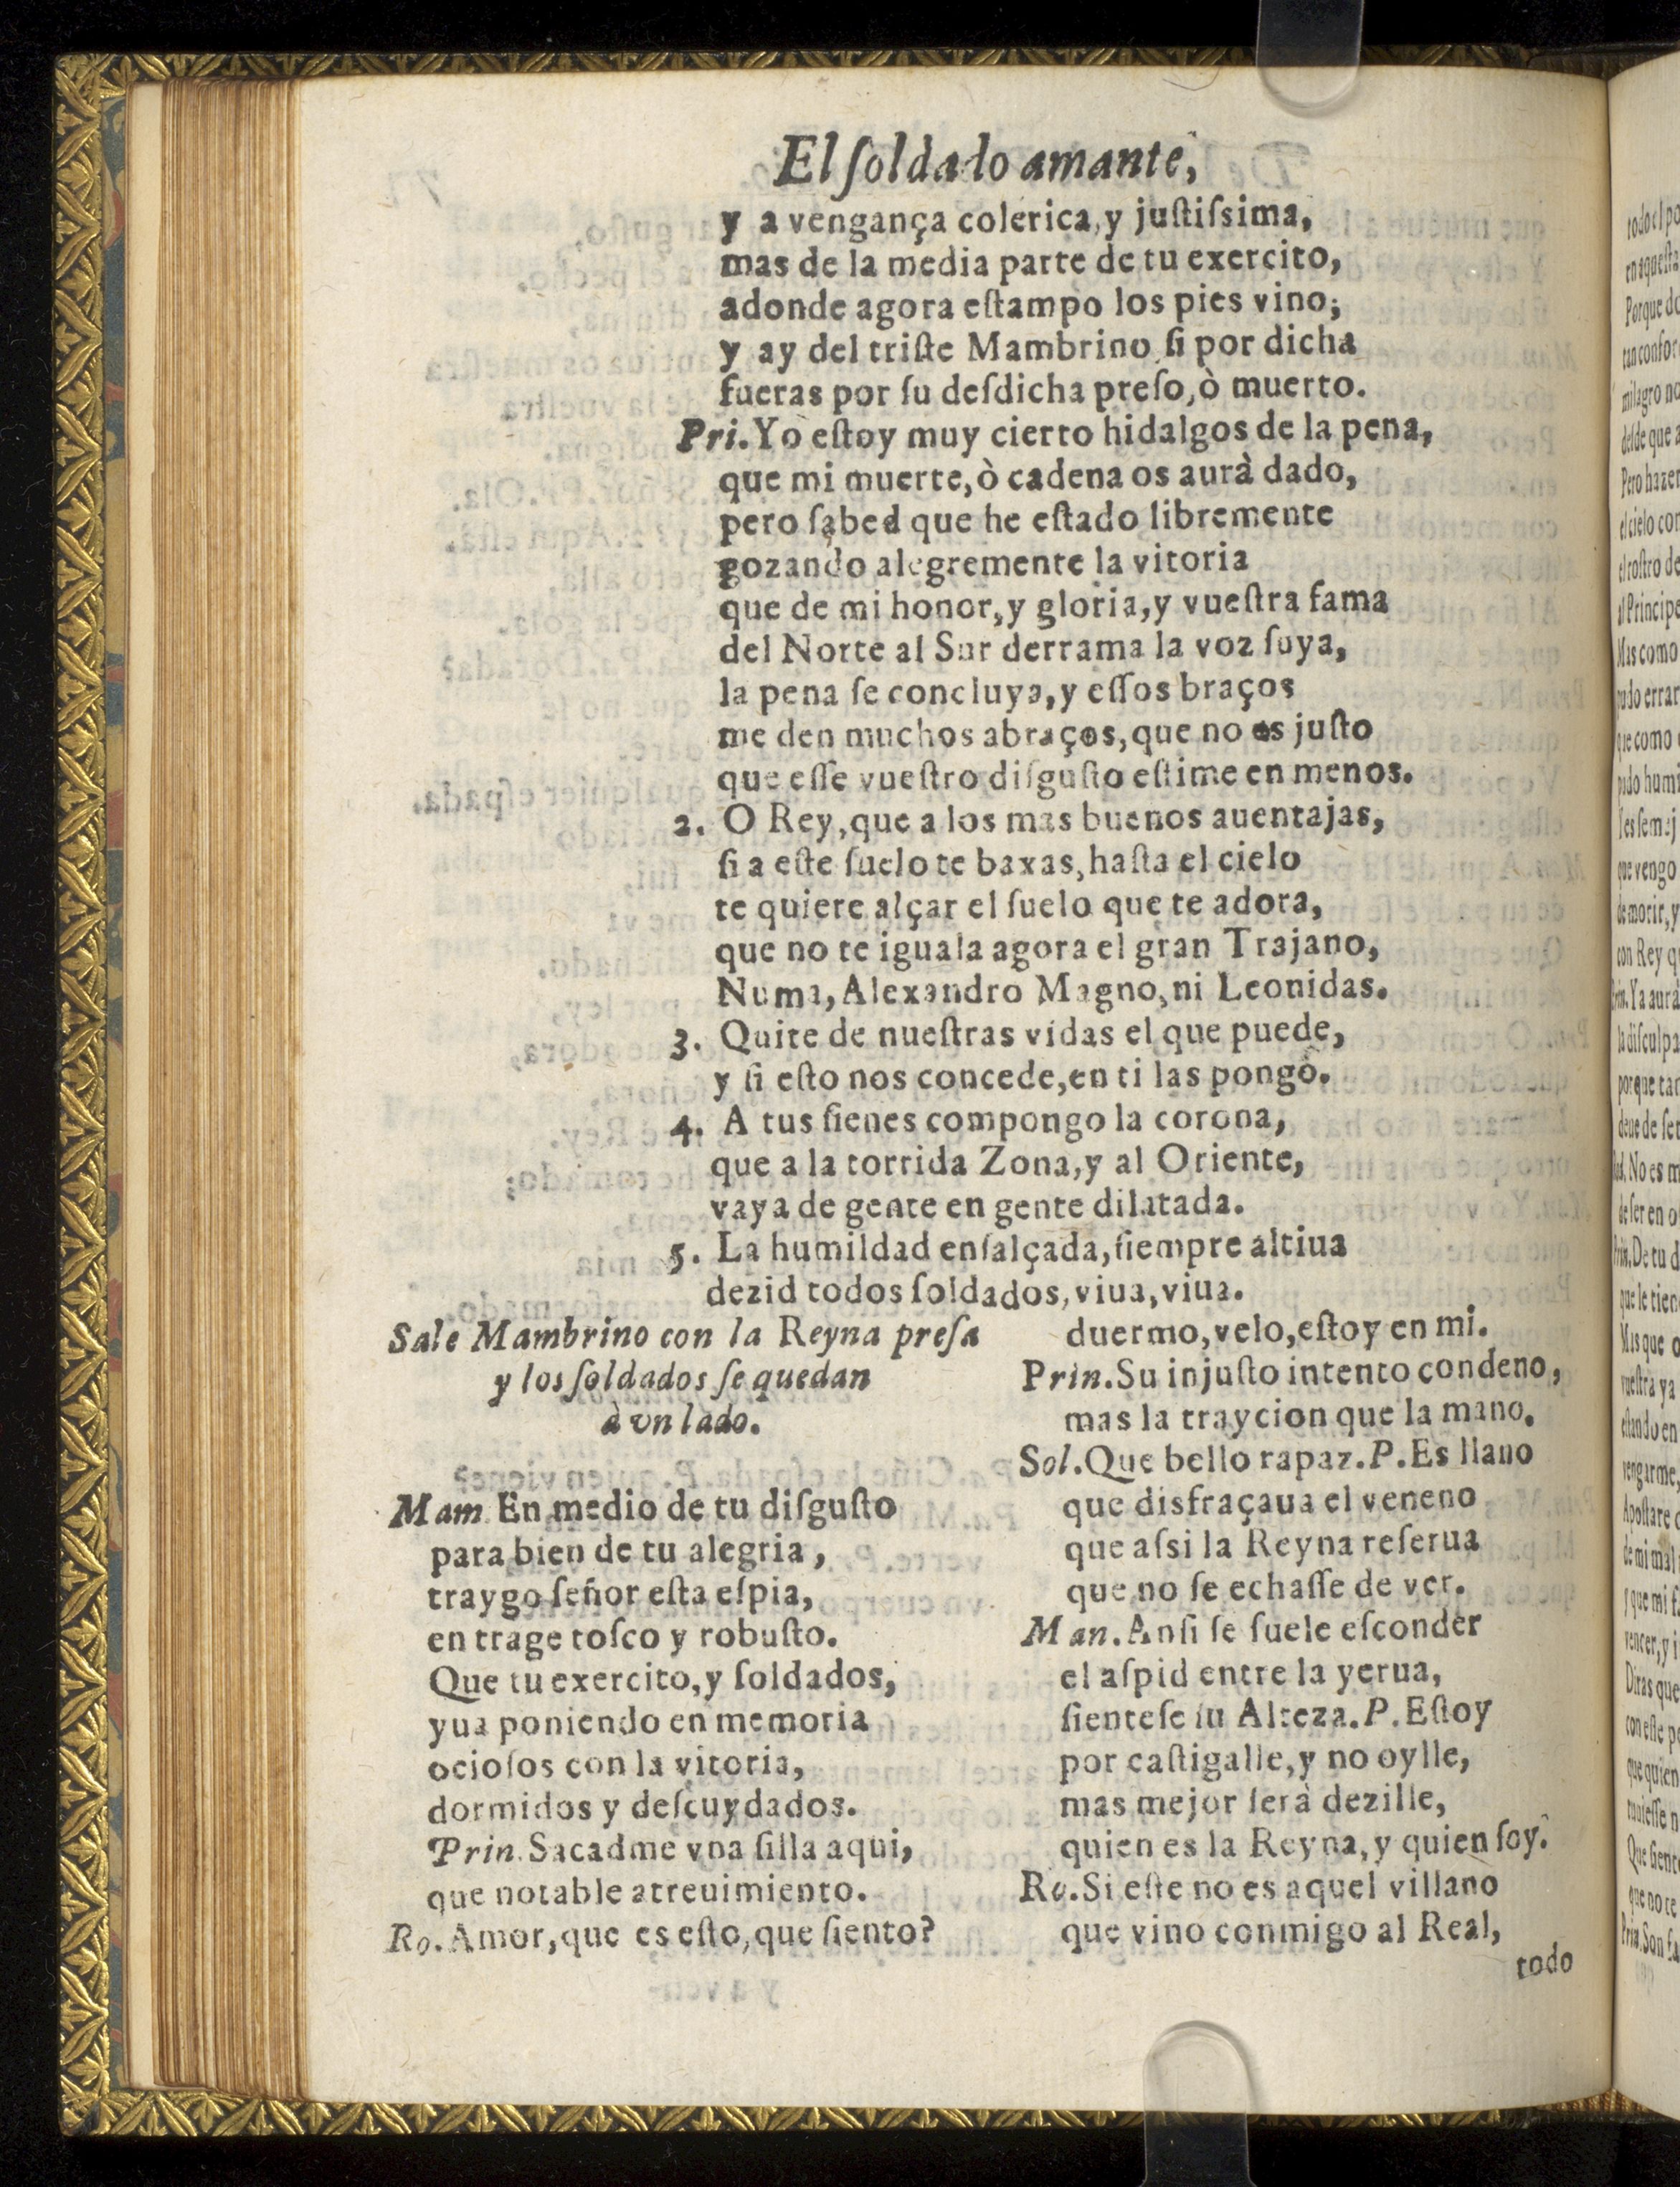 El ſoldado amante,
y a vengança colerica, y juſtiſsima,
mas de la media parte de tu exercito,
adonde agora eſtampo los pies vino;
y ay del triſte Mambrino ſi por dicha
fueras por ſu deſdicha preſo, ò muerto.
Pri. Yo eſtoy muy cierto hidalgos de la pena,
que mi muerte, ò cadena os aurà dado,
pero ſabed que he eſtado libremente
gozando alegremente la vitoria
que de mi honor, y gloria, y vueſtra fama
del Norte al Sur derrama la voz ſuya,
la pena ſe concluya, y eſſos braços
me den muchos abraços, que no es juſto
que eſſe vueſtro diſguſto eſtime en menos.
2. O Rey, que a los mas buenos auentajas,
ſi a eſte ſuelo te baxas, haſta el cielo
te quiere alçar el ſuelo que te adora,
que no te iguala agora el gran Trajano,
Numa, Alexandro Magno, ni Leonidas.
3. Quite de nueſtras vidas el que puede,
y ſi eſto nos concede, en ti las pongo.
4. A tus ſienes compongo la corona,
que a la torrida Zona, y al Oriente,
vaya de gente en gente dilatada.
5. La humildad enſalçada, ſiempre altiua
dezid todos ſoldados, viua, viua.
Sale Mambrino con la Reyna preſa
y los ſoldados ſe quedan
à vn lado.
Mam. En medio de tu diſguſto
para bien de tu alegria,
traygo ſeñor eſta eſpia,
en trage toſco y robuſto.
Que tu exercito, y ſoldados,
yua poniendo en memoria
ocioſos con la vitoria,
dormidos y deſcuydados.
Prin. Sacadme vna ſilla aqui,
que notable atreuimiento.
Ro. Amor, que es eſto, que ſiento?
duermo, velo, eſtoy en mi.
Prin. Su injuſto intento condeno,
mas la traycion que la mano.
Sol. Que bello rapaz. P. Es llano
que disfraçaua el veneno
que aſsi la Reyna reſerua
que no ſe echaſſe de ver.
Man. Anſi ſe ſuele eſconder
el aſpid entre la yerua,
ſienteſe ſu Alteza. P. Eſtoy
por caſtigalle, y no oylle,
mas mejor ſerà dezille,
quien es la Reyna, y quien ſoy.
Ro. Si eſte no es aquel villano
que vino conmigo al Real,
todo